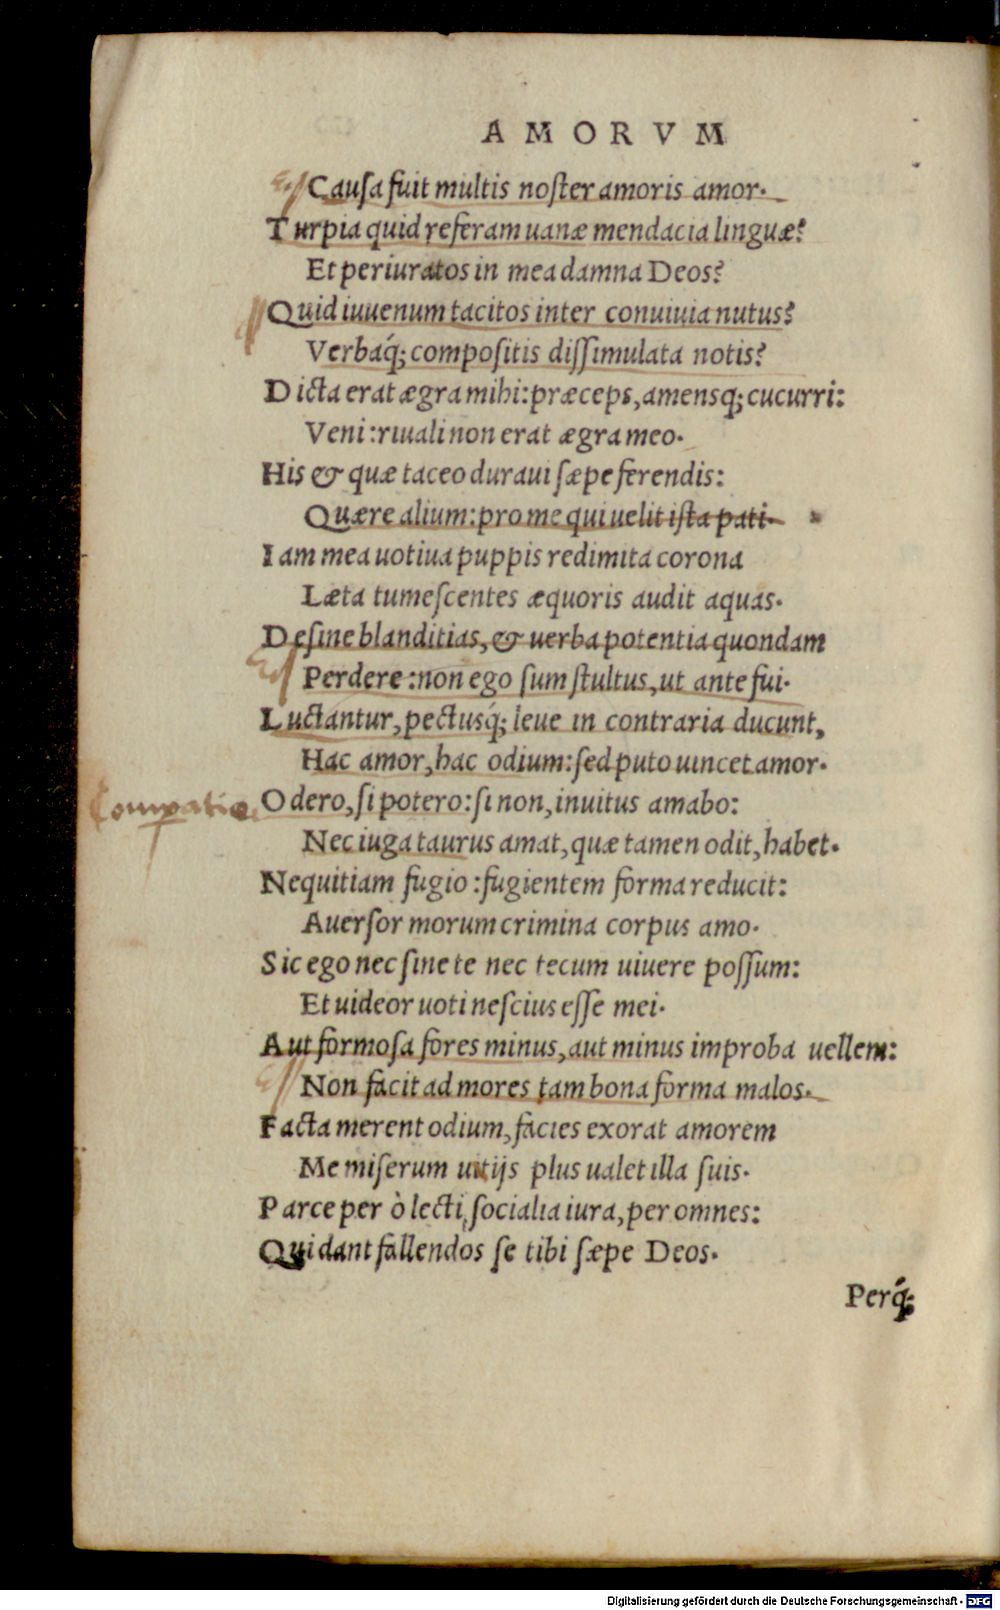 AMORVM
Cauſa fuit multis noſter amoris amor.
Turpia quid referam uanæ mendacia linguæ?
Et periuratos in mea damna Deos?
Quid iuuenum tacitos inter conuiuia nutus?
Verbaq́; compoſitis diſſimulata notis?
Dicta erat ægra mihi: præceps, amensq; cucurri:
Veni: riuali non erat ægra meo.
His & quæ taceo duraui ſæpe ferendis:
Quære alium: pro me qui uelit iſta pati.
Iam mea uotiua puppis redimita corona
Læta tumeſcentes æquoris audit aquas.
Deſine blanditias, & uerba potentia quondam
Perdere: non ego ſum ſtultus, ut ante fui.
Luctantur, pectusq́; leue in contraria ducunt,
Hac amor, hac odium: ſed puto uincet amor.
Odero, ſi potero: ſi non, inuitus amabo:
Nec iuga taurus amat, quæ tamen odit, habet.
Nequitiam fugio: fugientem forma reducit:
Auerſor morum crimina corpus amo.
Sic ego nec ſine te nec tecum uiuere poſſum:
Et uideor uoti neſcius eſſe mei.
Aut formoſa fores minus, aut minus improba uellem:
Non facit ad mores tam bona forma malos.
Facta merent odium, facies exorat amorem
Me miſerum uitijs plus ualet illa ſuis.
Parce per ò lecti ſocialia iura, per omnes:
Qui dant fallendos ſe tibi ſæpe Deos.
Perq́;
Digitalisierung gefördert durch die Deutsche Forschungsgemeinschaft - DFG